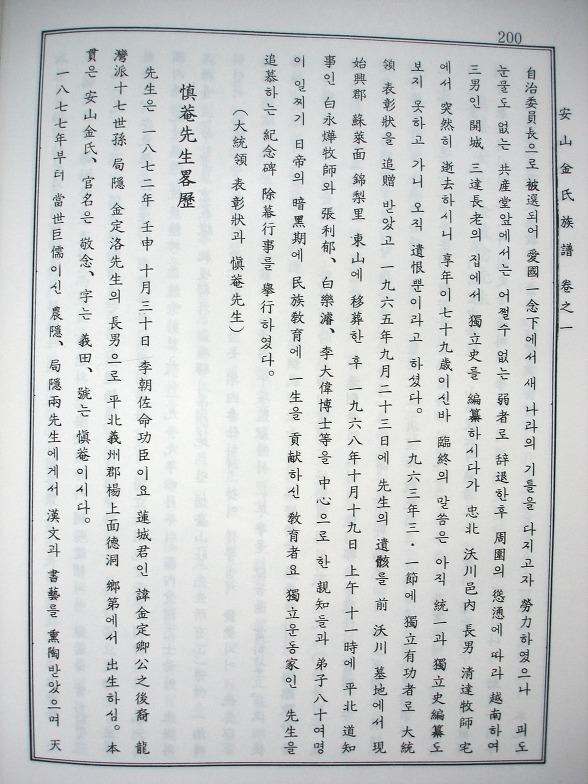 200
安山金氏族譜 卷之一
自治委員長으로 被選되어 愛國一念下에서 새 나라의 기틀을 다지고자 勞力하였으나 피도
눈물도 없는 共産堂앞에서는 어쩔수 없는 弱者로 辞退한후 周圍의 慫慂에 따라 越南하여
三男인 開城 三達長老의 집에서 獨立史를 編纂하시다가 忠北 沃川邑內 長男 清達牧師 宅
에서 突然히 逝去하시니 享年이 七十九歲이신바 臨終의 말씀은 아직 統一과 獨立史編纂도
보지 못하고 가니 오직 遺恨뿐이라고 하셨다。 一九六三年 三·一節에 獨立有功者로 大統
領 表彰狀을 追贈 받았고 一九六五年九月二十三日에 先生의 遺骸를 前 沃川 墓地에서 現
始興郡 蘇萊面 錦梨里 東山에 移葬한 後 一九六八年十月十九日 上午 十一時에 平北 道知
事인 白永燁牧師와 張利郁、白樂濬、李大偉博士等을 中心으로 한 親知들과 弟子八十여명
이 일찌기 日帝의 暗黑期에 民族敎育에 一生을 貢献하신 敎育者요 獨立운동家인 先生을
追慕하는 紀念碑 除幕行事를 擧行하였다。
(大統領 表彰狀과 愼菴先生)
愼菴先生畧歷
先生은 一八七二年 壬申 十月三十日 李朝佐命功臣이요 蓮城君인 諱金定卿公之後裔 龍
灣派十七世孫 局隱 金定洛先生의 長男으로 平北義州郡楊上面德洞 鄉第에서 出生하심。本
貫은 安山金氏、官名은 敬念、字는 義田、號는 愼菴이시다。
一八七七年부터 當世巨儒이신 農隱、局隱兩先生에게서 漢文과 書藝를 熏陶받았으며 天